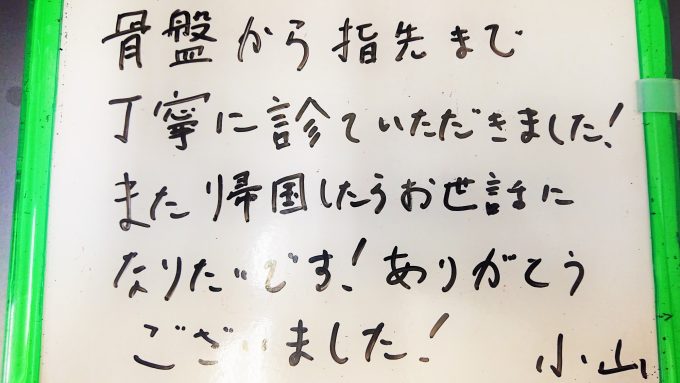 骨盤から指先まで
丁寧に診ていただきました!
また帰国したらお世話に
なりたいです!ありがとう
ございました!
小山